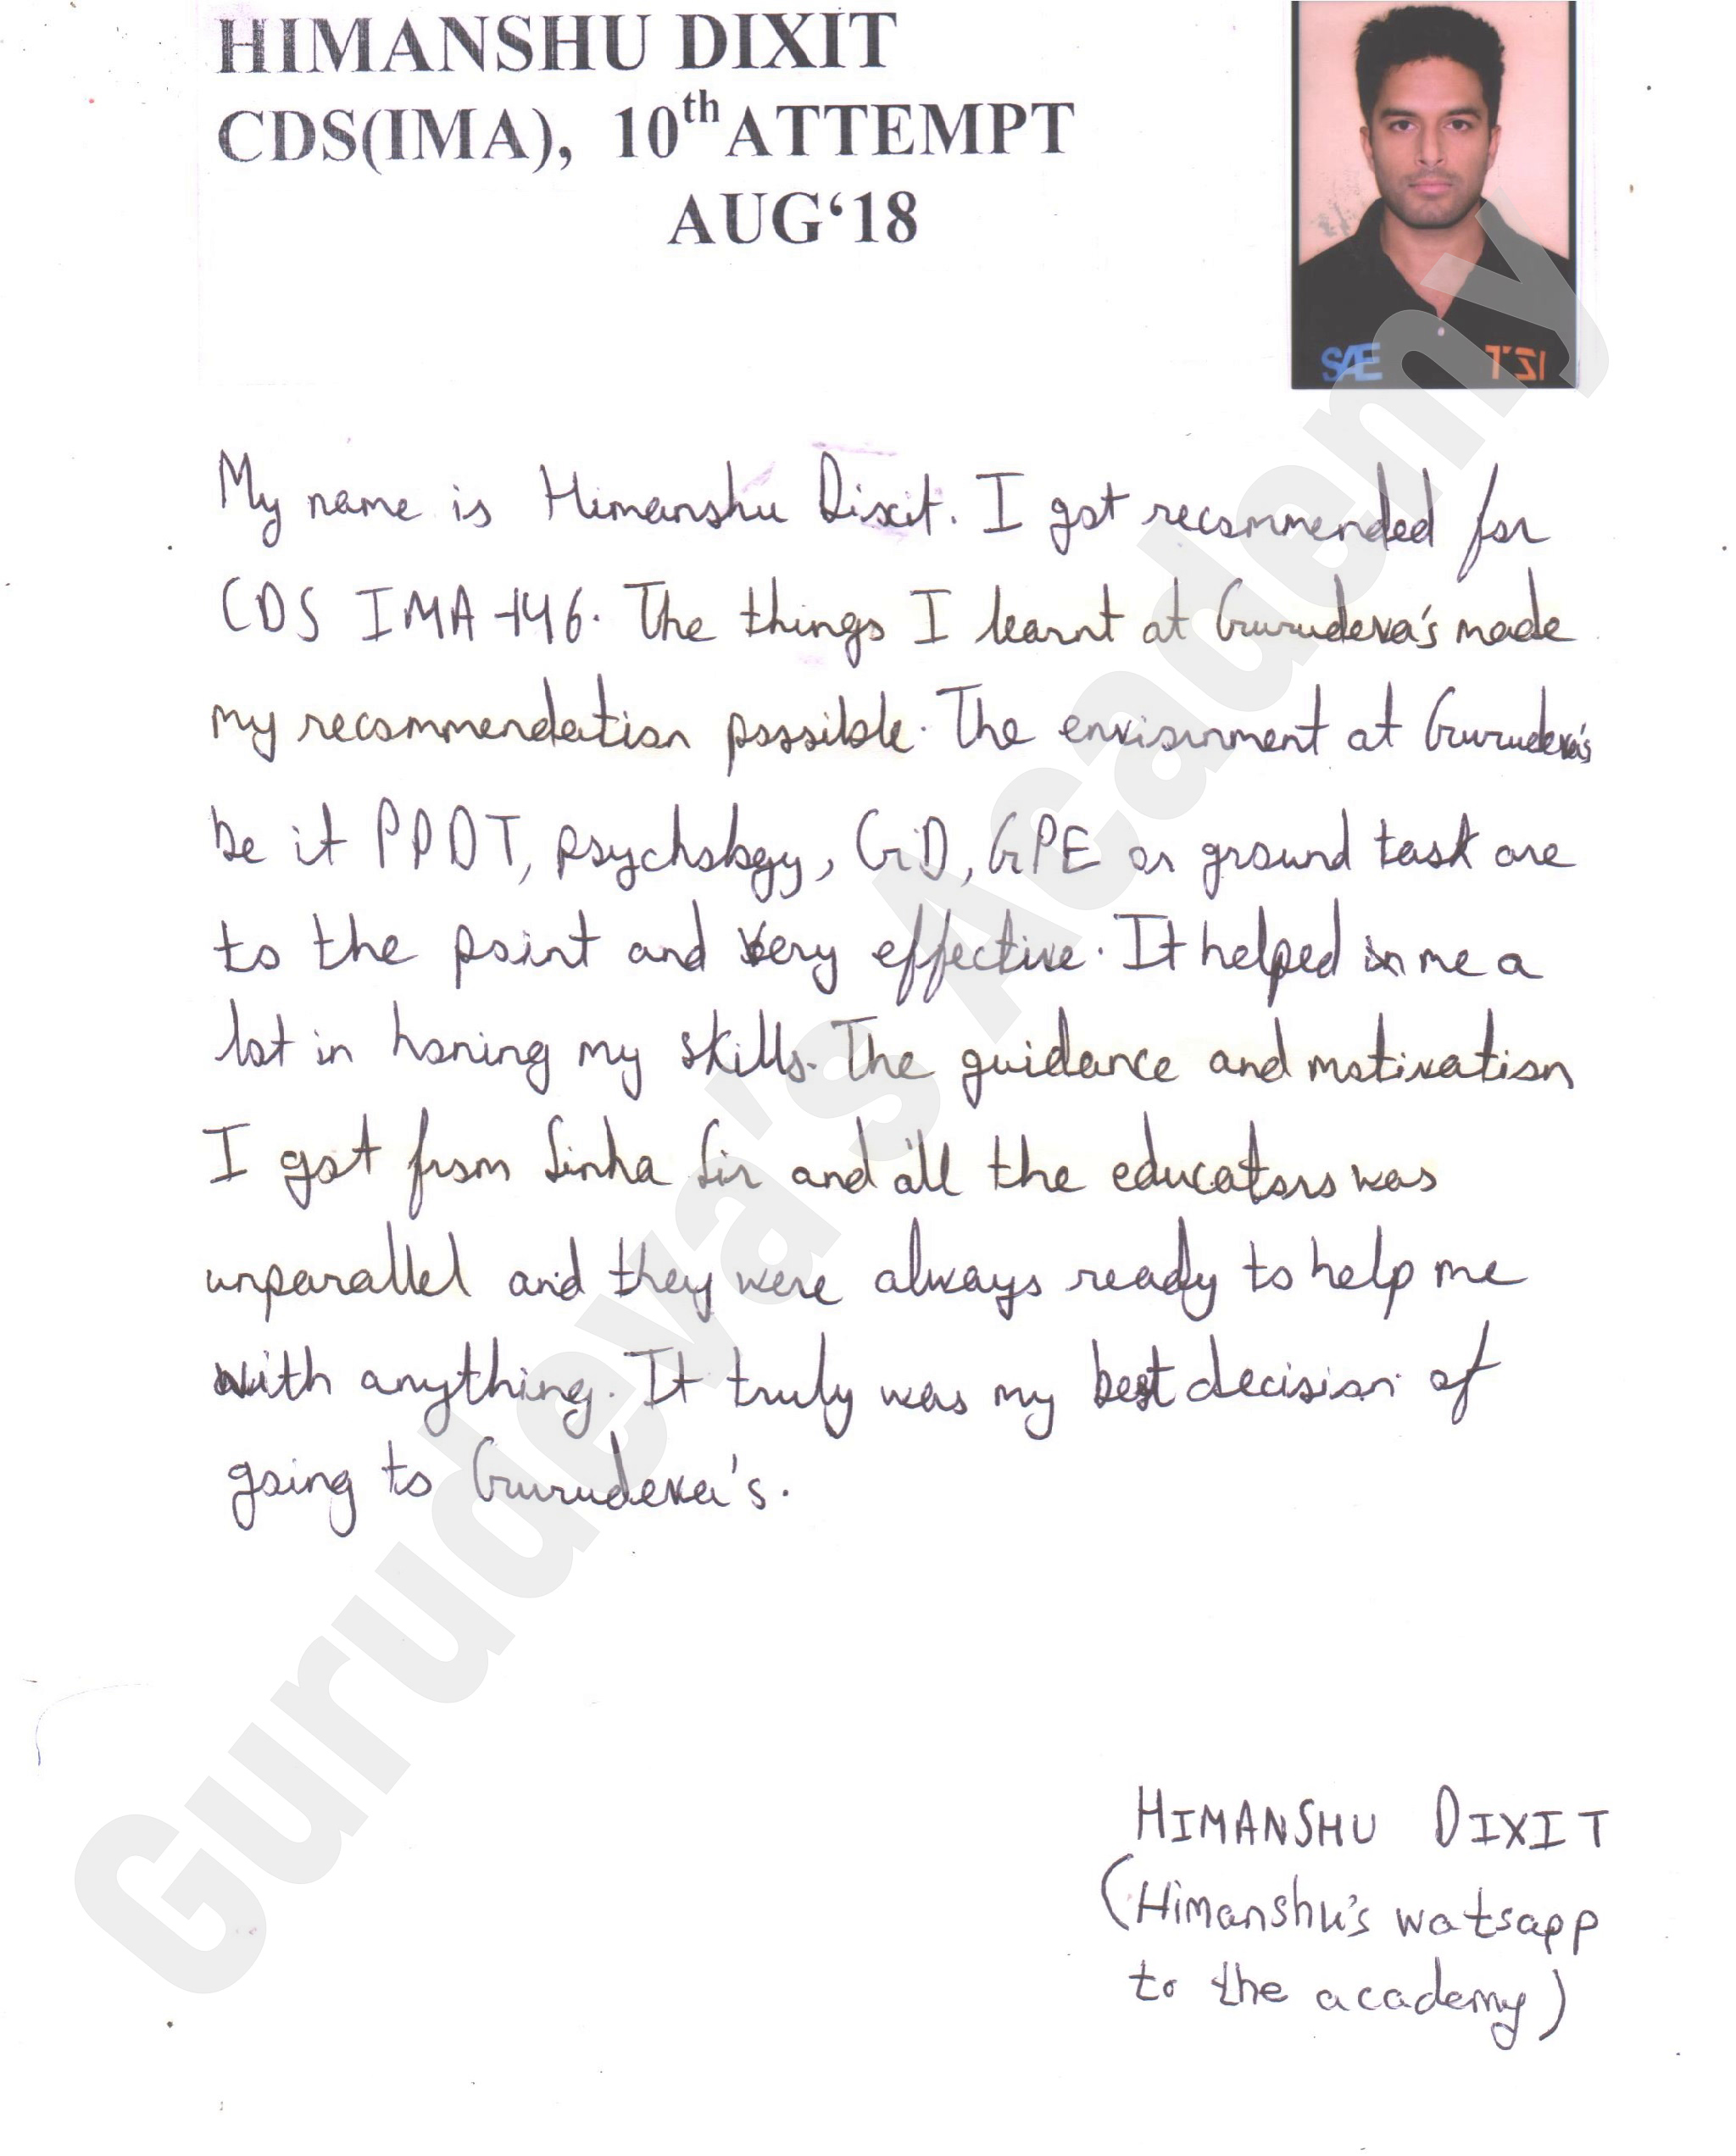 HIMANSHU DIXIT
CDS(IMA), 10th ATTEMPT
AUG‘18
SAE
My name is Himanshu Dixit. I got recommended for
CDS IMA-146. The things I learnt at Gurudeva's made
my recommendation possible. The environment at Gurudeva's
be it PPDT, psychology, GD, GPE or ground task are
to the point and very effective. It helped in me a
lot in honing my skills. The guidance and motivation
I got from Sinha Sir and all the educators was
unparallel and they were always ready to help me
with anything. It truly was my best decision of
going to Gurudeva's.
HIMANSHU DIXIT
(Himanshu's watsapp
to the academy)
Gurudeva's Academy